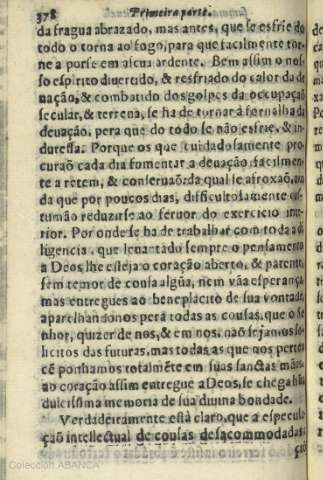 378 Primeira parte.
da fragua abrazado, mas antes, que se esfrie do
todo o torna ao fogo, para que facilmente tor-
ne a porse em alcua ardente. Bem assim o nos-
so espirito diuertido, & resfriado do calor da de
uação, & combatido dos golpes da occupação
secular, & terrena, se ha de tornar à fornalha da
deuação, pera que do todo se não esfrie, & in-
duressa: Porque os que cuidadosamente pro-
curaõ cada dia fomentar a deuação, facilmen-
te a retem, & conseruaõ: da qual se afroxaõ,
da que por poucos dias, difficultosamente cos-
tumão reduzirse ao feruor do exercicio inte-
rior. Por onde se ha de trabalhar com toda a di
ligencia, que leuantado sempre o pensamento
a Deos, lhe esteja o coração aberto, & patente,
sem temor de cousa algũa, nem vãa esperança
mas entregues ao beneplacito de sua vontade,
aparelhandonos pera todas as cousas, que o Se
nhor, quizer de nos, & em nos, naõ sejamos so-
licitos das futuras, mas todas as que nos perten
cẽ ponhamos totalmẽte em suas sanctas mãos
ao coração assim entregue a Deos, se chega hũa
dulcissima memoria de sua diuina bondade.
Verdadeiramente està claro, que a especula-
ção intellectual de cousas desacommodadas
Colección ABANCA